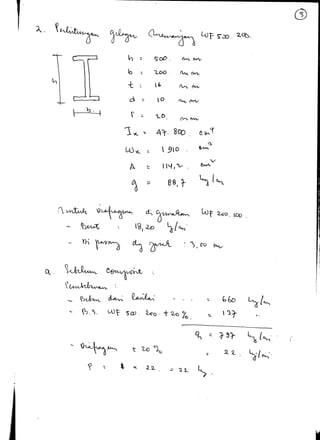 3
2. Perhitungan gelagar memanjang WF 500 200.
h
b
h = 500 mm
b = 200 mm
t = 16 mm
d = 10 mm
r = 20 mm
Ix = 47.800 cm4
Wx = 1910 cm3
A = 114,2 cm2
g = 89,7 kg/m
Untuk diafragma di gunakan WF 200.100
- Berat : 18,20 kg/m
- Di pasang dg jarak : 3,00 m
a. Sebelum composit :
Pembebanan :
- Beban dari lantai . . . = 660 kg/m
- B.S. WF 500 200 + 20 % = 137 "
q = 797 kg/m
- Diafragma + 20 % = 22 kg/m
P = 1 x 22 = 22 kg.